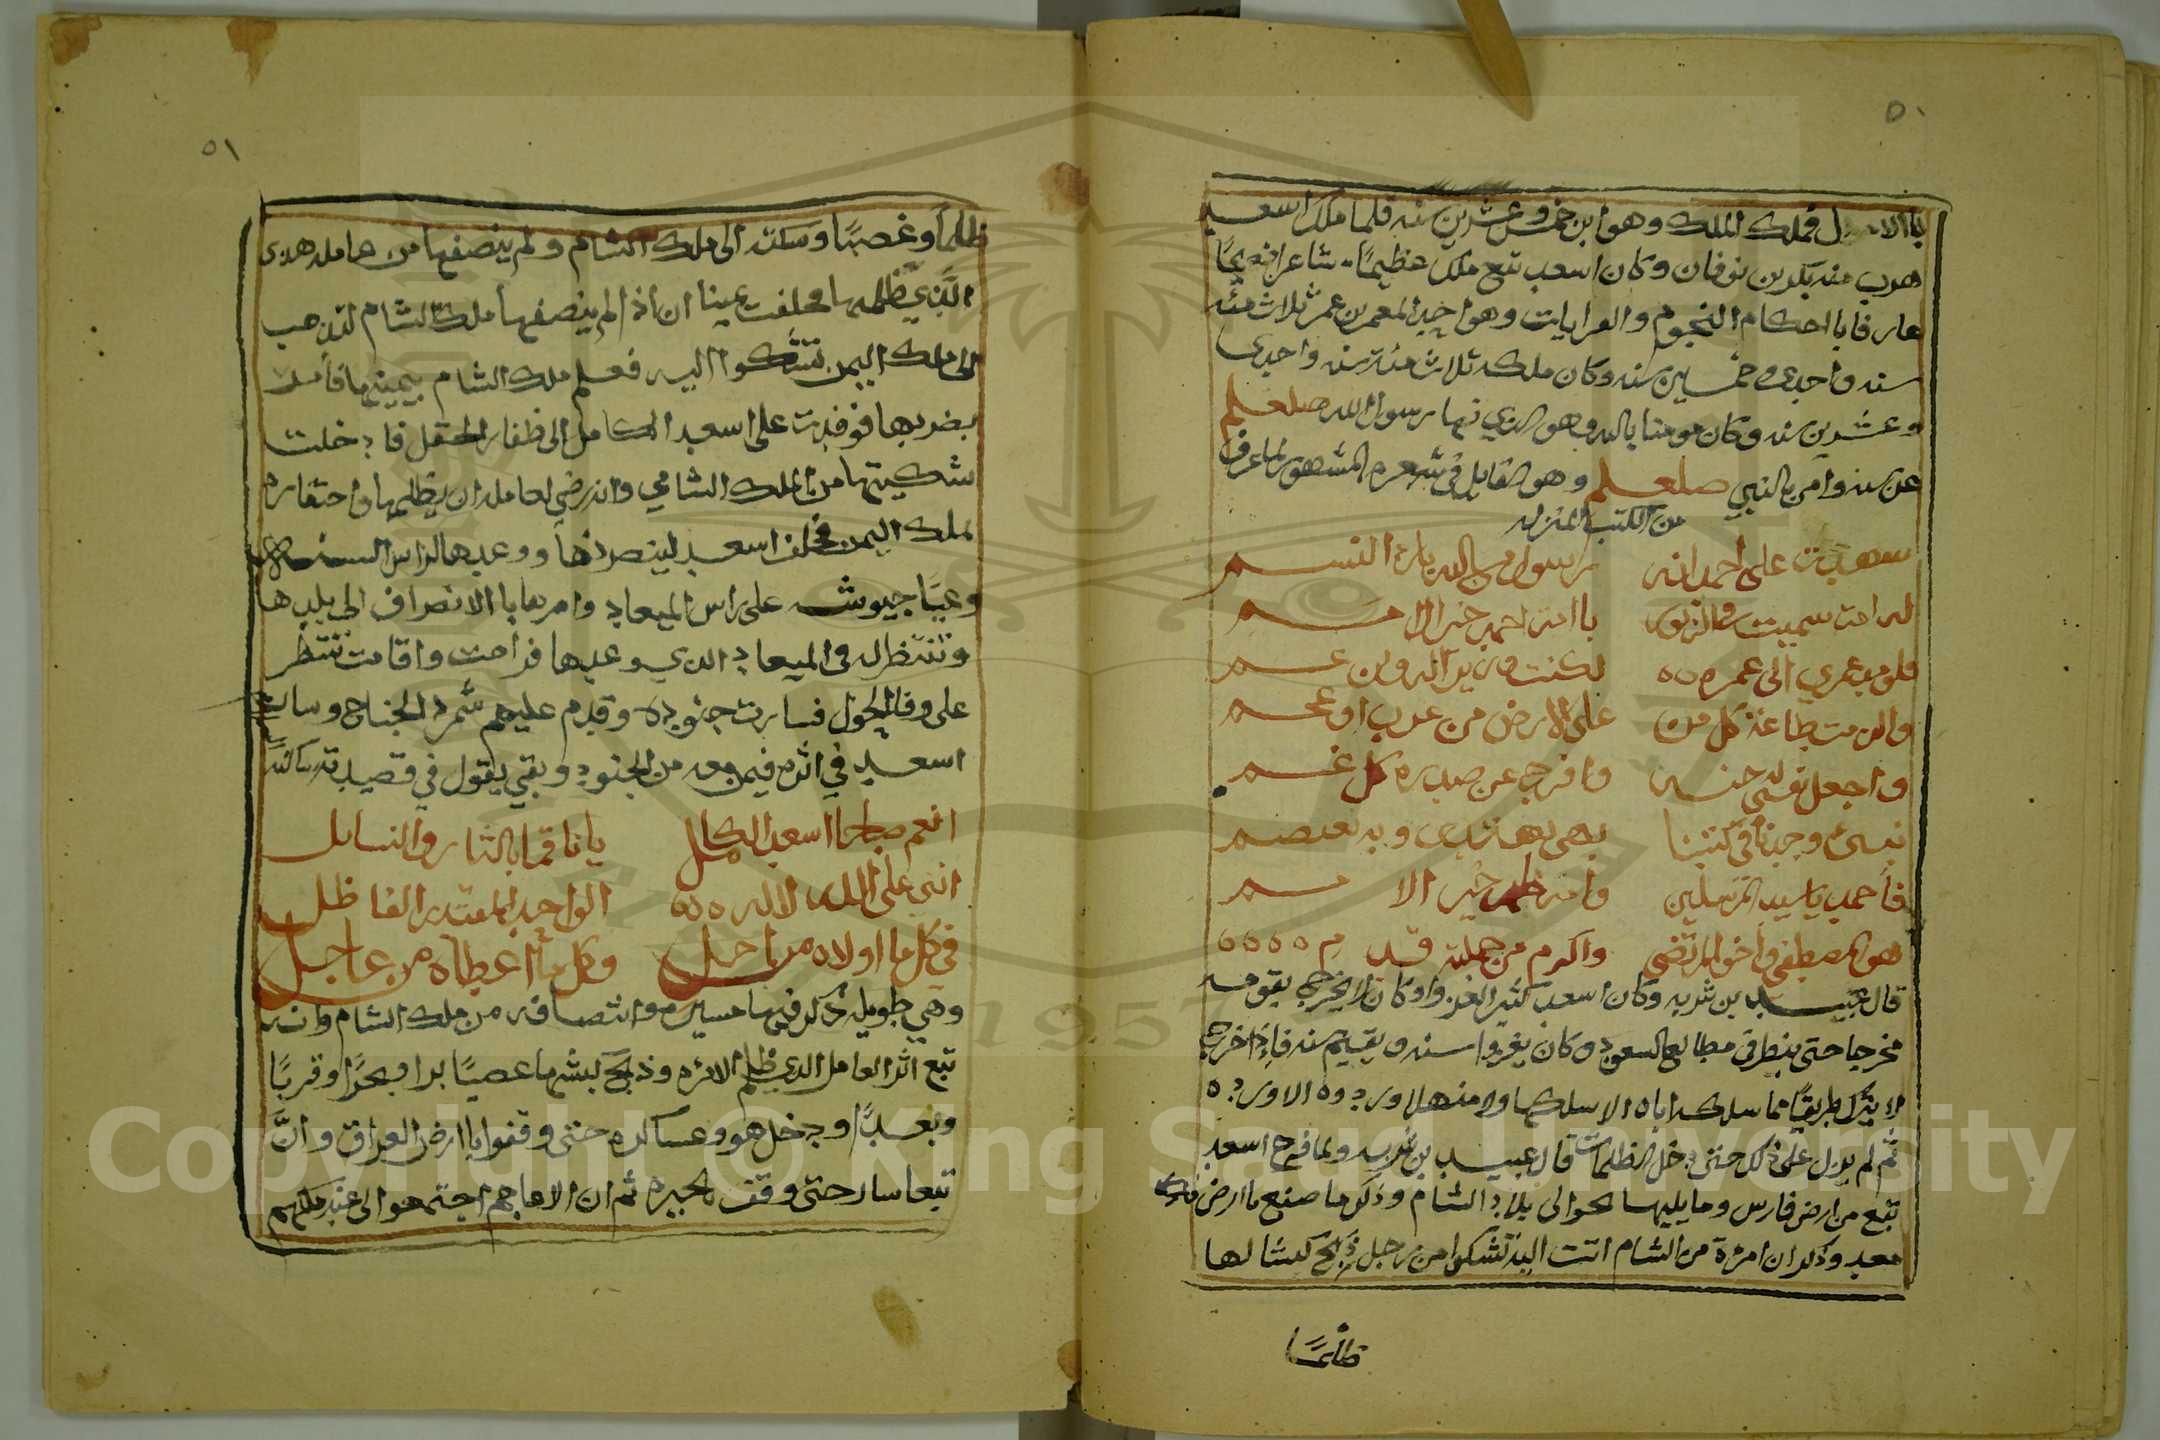 ٥١
باالاول فملك الملك وهو ابن خمس وعشرين سنه فلما ملك اسعد
هرب منه بكر بن نوفان وكان اسعد تبع ملك عظيمًا شاعرا فصيحًا
عارفا باحكام النجوم والقرايات وهو احد المعمرين عمر ثلاث مئه
سنه واحدى وخمسين سنه وكان ملكه ثلاث مئة سنه واحدى
وعشرين سنه وكان مومنا بالله وهو الذي نها رسول الله صلعلم
عن سبه وامن بالنبي صلعلم وهو القايل في شعره المشهور لما عرف
من الكتب المنزله
شهدت على احمد انه رسول من الله بارئ النسم
له امت سميت في الزبور باامت احمد خير الامم
فلو مد عمري الى عمره ٥٥ لكنت وزير اله وبن عم
والزمت طاعته كل من على الارض من عرب او عجم
واجعل نفسي له جنه وافرج عن صدره كل غم
نبيئ وجدناه في كتبنا بهى يهتدى وبه نعتصم
فاحمد يا سيد المرسلين وامته خير الامم
هو المصطفى واخو المرتضى واكرم من حملته قدم ٥٥٥٥
قال عبيد بن شريه وكان اسعد كثير الغزو وكان لا يخرجي بقومه
مخرجا حتى ينظر في مطالع السعود وكان يغزوا سنه ويقيم سنه فاذا خرج
لا يترك طريقًا مما سلكه اباه الا سلكها ولا منهلا وردوه الا ورده
ثم لم يزل على ذلك حتى دخل الظلمات قال عبيد بن شريه ولما فرح اسعد
تبع من ارض فارس وما يليها نحوا لى بلاد الشام وذكر ما صنع باارض
معد وذكر ان امرئة من الشام اتت اليه تشكوا من رجل ذبح كبشا لها
ظلمًا
٥١
ظلمًا وغصبًا وسكته الى ملك الشام ولم ينصفها من عامله هدى
الَّذي ظلمها فحلفت يمينا ان اذا لم ينصفها ملك الشام لتذهب
الى ملك اليمن تتشكوا اليه فعلم ملك الشام بيمينها فأمر
بضربها فوفدت على اسعد الكامل الى ظفار الحقل فادخلت
شكيتها من الملك الشامي وانه رضي لعامله ان يظلمها واحتقاره
لملك اليمن فحلف اسعد لينصرنها ووعدها لراس السنه
وعبَّا جيوشه على راس الميعاد وامرها باالانصراف الى بلدها
وتنتظر له في الميعاد الذي وعدها فراحت واقامت تنتظر
على وفا الحول فسارت جنوده وقدم عليهم شمر ذ الجناح وسار
اسعد في اثره فيمن معه من الجنود وبقي يقول في قصيدته
انعم صباحا اسعد الكامل يا ناقما بالثار والنسايل
اثني على الله الاله ٥٥ الواحد المقتدر الفاظل
في كل ما اولاه من اجل وكل ما اعطاه من عاجل
وهي طويله ذكر فيها مسيره وانتصافه من ملك الشام وانه
تبع اثر العامل الذي ظلم الامرءه وذبح كبشها غصبًا برا وبحرًا وقربًا
وبعدًا ودخل هو وعساكره حتى وقفوا باارض العراق وانَّ
تبعا سار حتى وقف بالحيره ثم ان الاعاجم اجتمعوا الى عند ملكهم
Copyright © King Saud University
1957